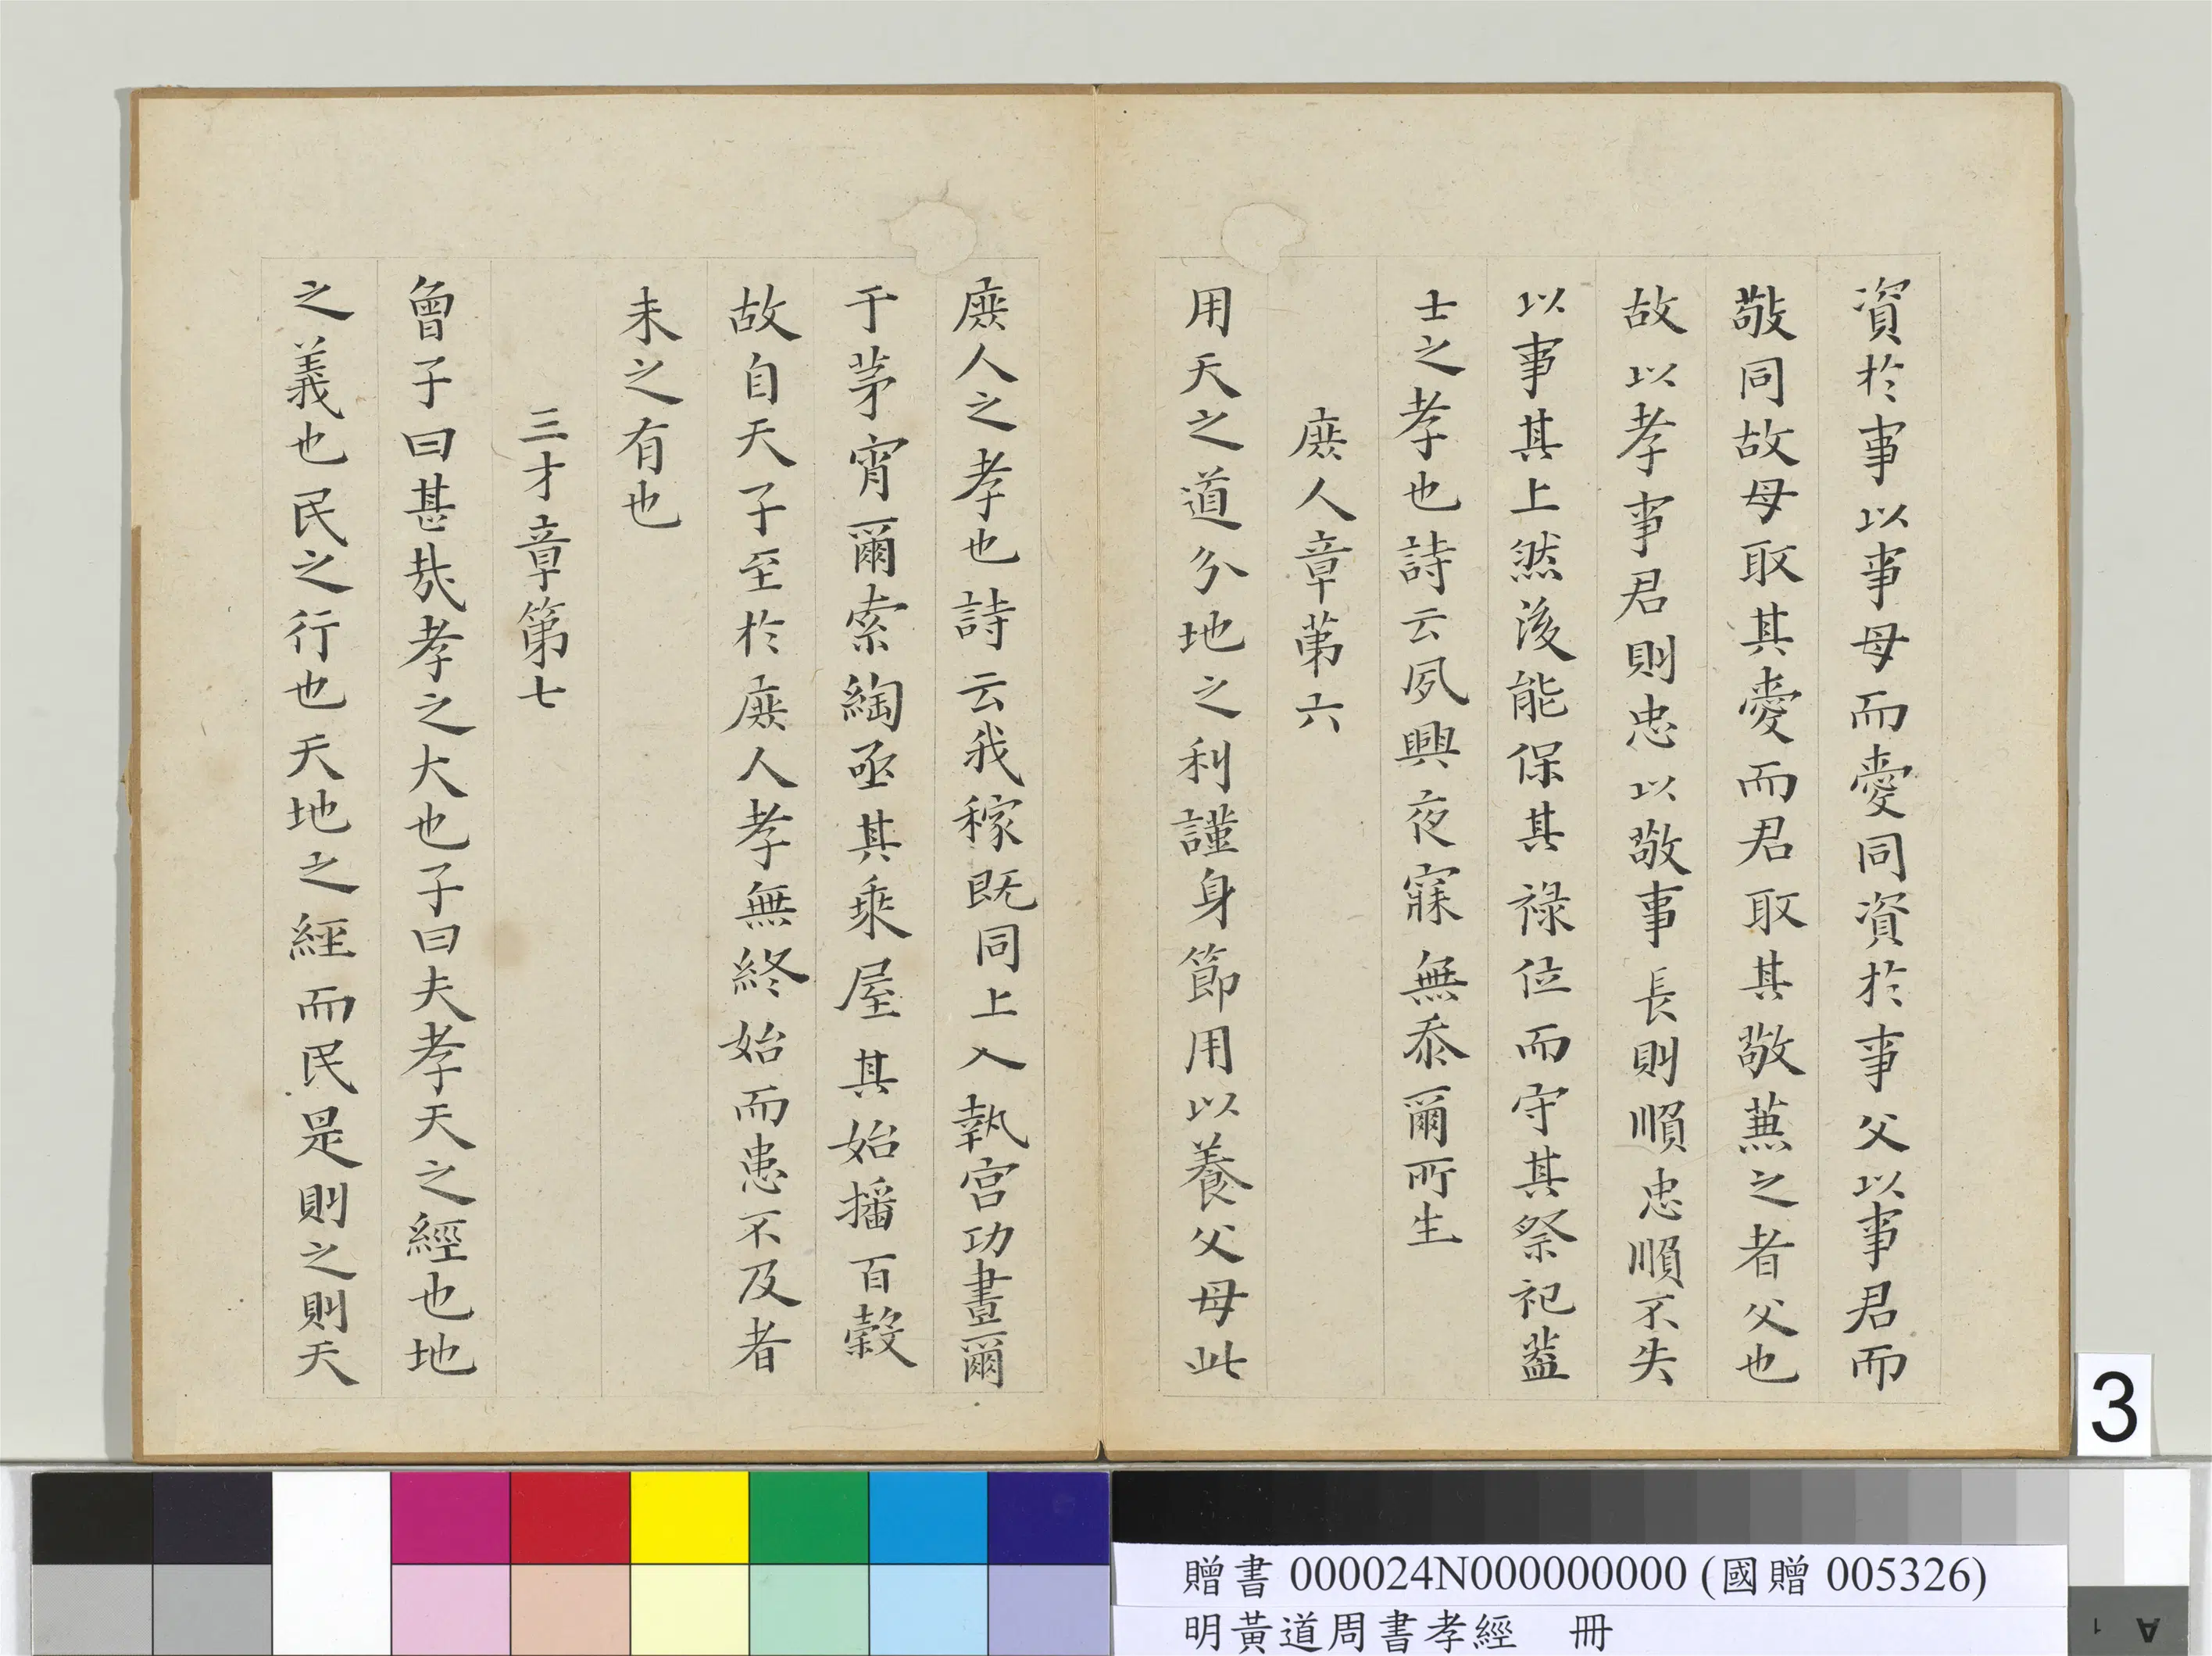 資於事以事母而愛同資於事父以事君而
敬同故母取其愛而君取其敬蕪之者父也
故以孝事君則忠以敬事長則順忠順不失
以事其上然後能保其祿位而守其祭祀蓋
士之孝也詩云夙興夜寐無忝爾所生
庶人章第六
用天之道分地之利謹身節用以養父母此
庶人之孝也詩云我稼既同上入執宮功晝爾
于茅宵爾索綯亟其乘屋其始播百穀
故自天子至於庶人孝無終始而患不及者
未之有也
三才章第七
曾子曰甚哉孝之大也子曰夫孝天之經也地
之義也民之行也天地之經而民是則之則天
3
贈書 000024N000000000 (國贈 005326)
明黃道周書孝經 冊
A 1